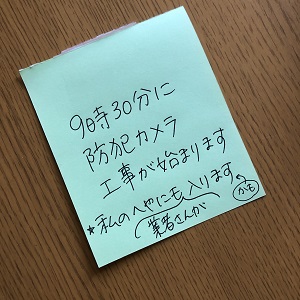 9時30分に
防犯カメラ
工事が始まります
★私のへやにも入ります
業者さんが
かも